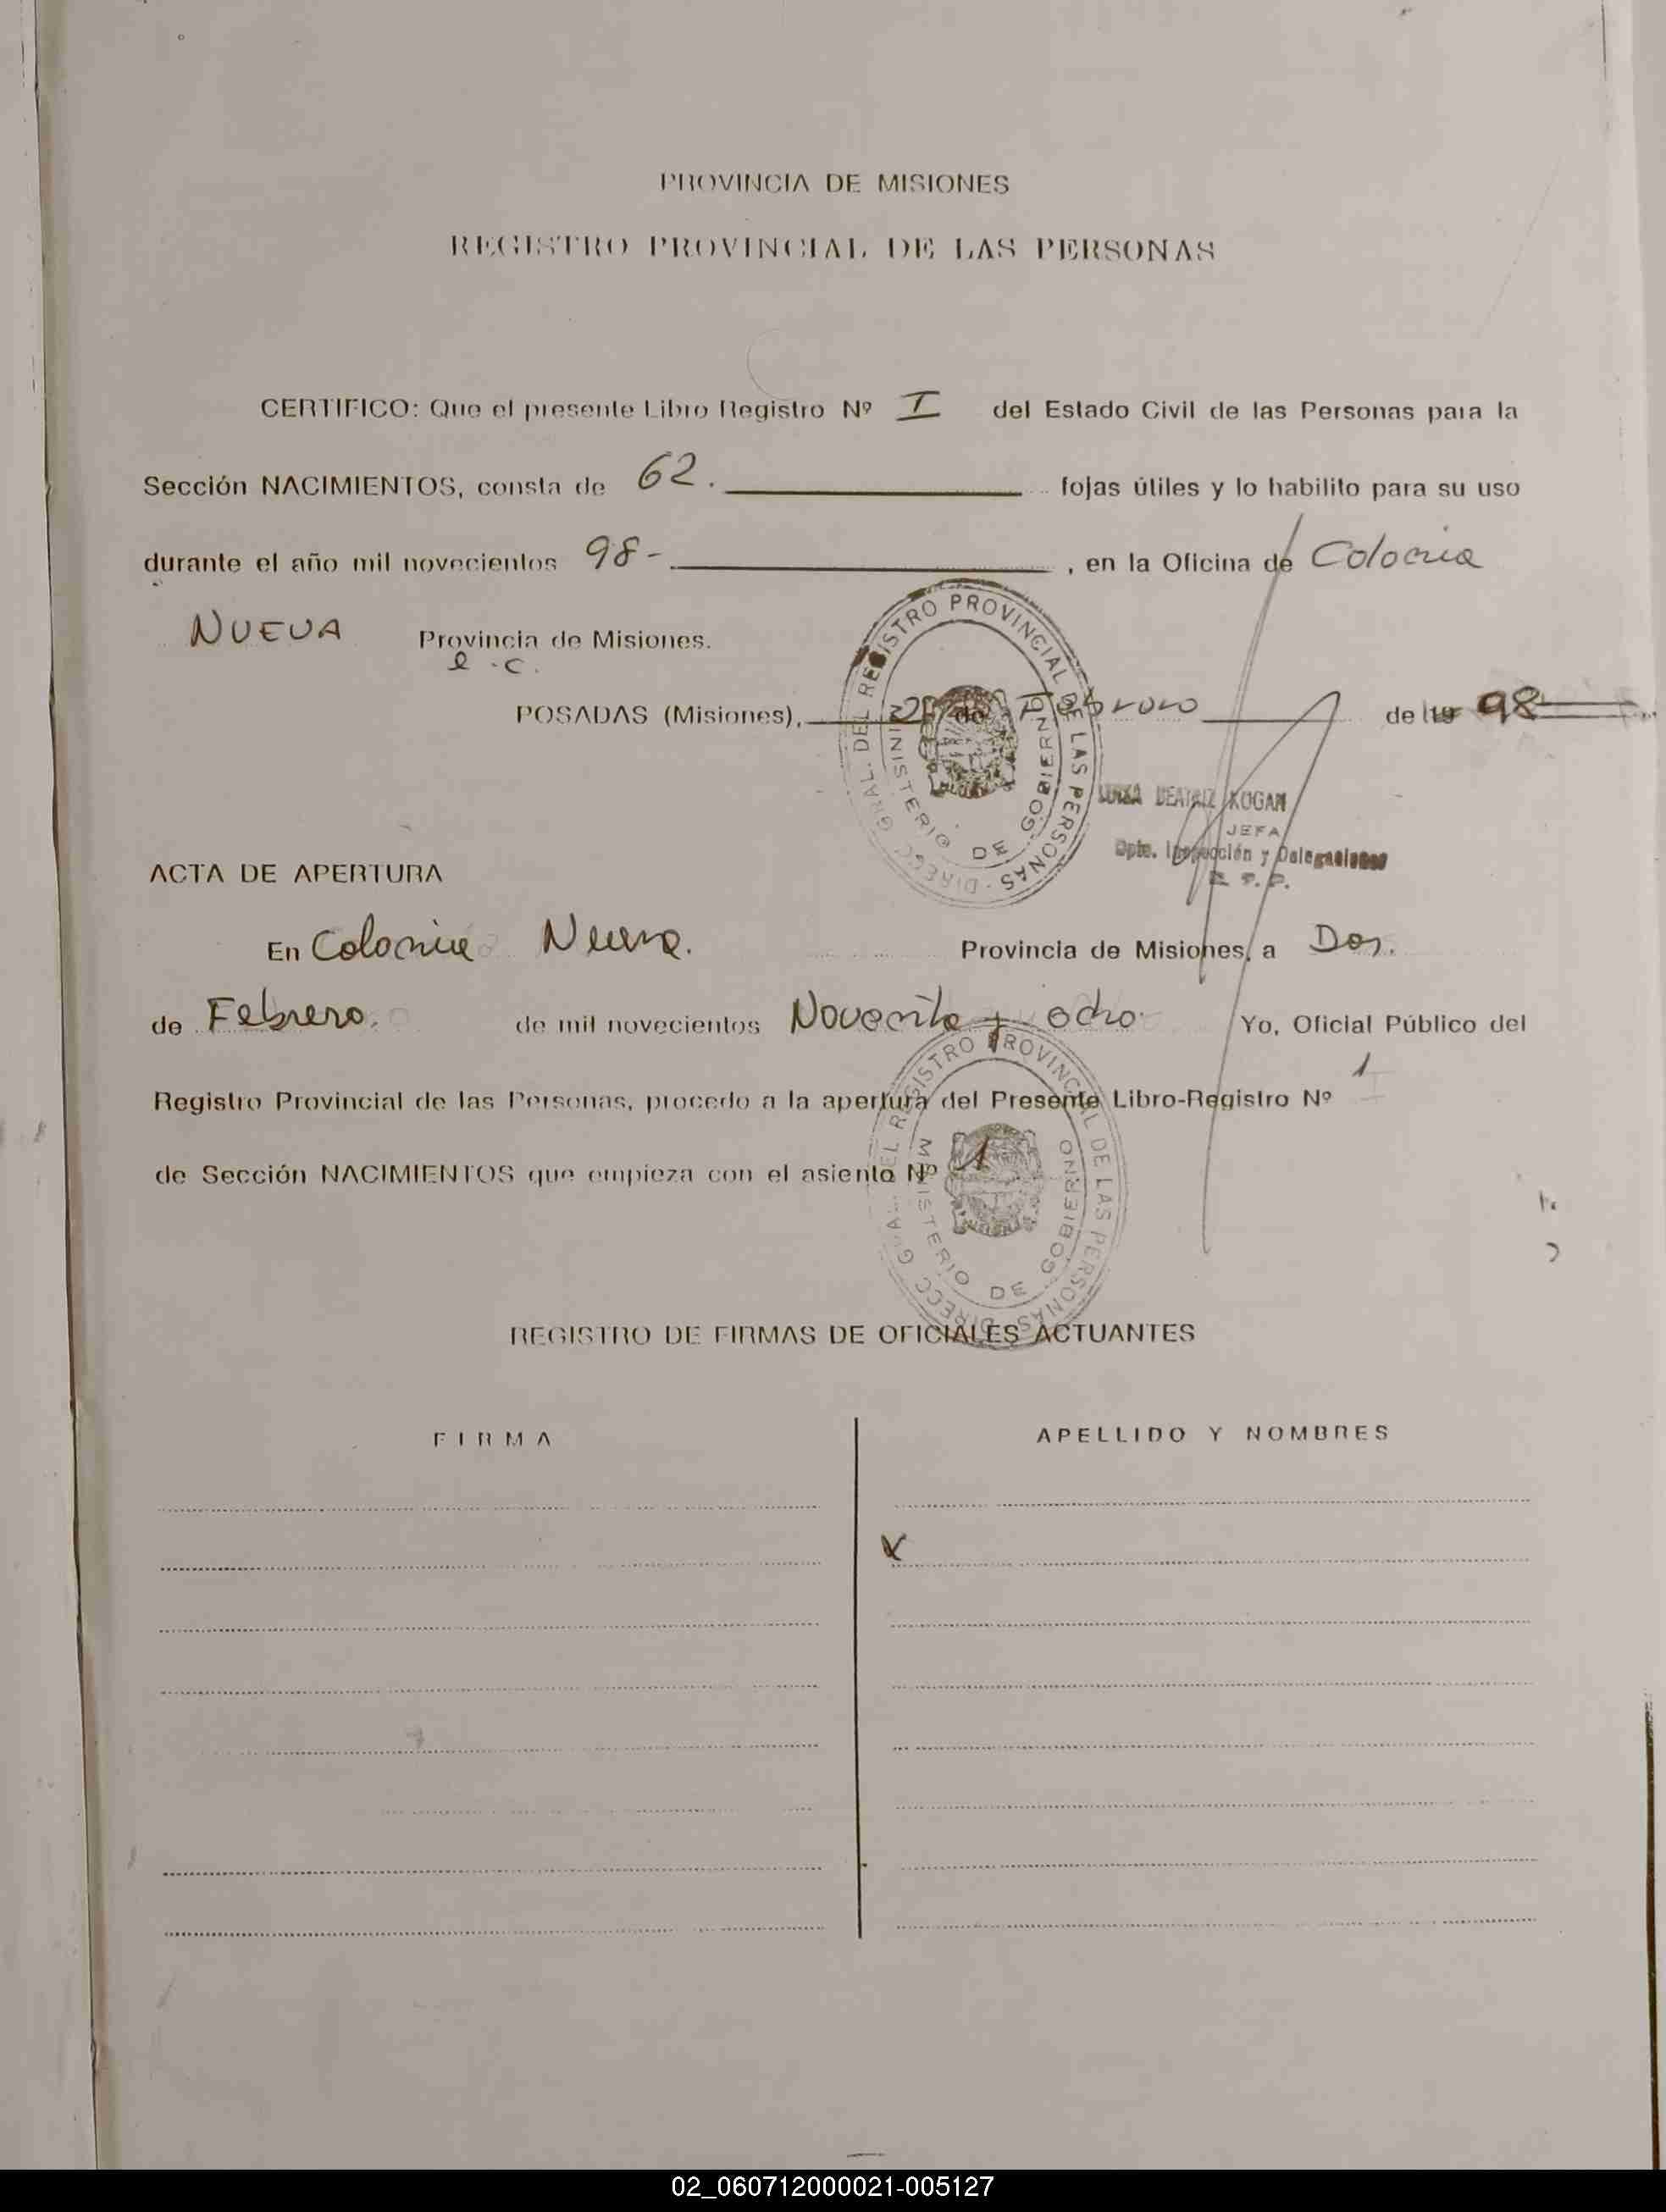 PROVINCIA DE MISIONES
REGISTRO PROVINCIAL DE LAS PERSONAS
CERTIFICO: Que el presente Libro Registro Nº I del Estado Civil de las Personas para la
Sección NACIMIENTOS, consta de 62. fojas útiles y lo habilito para su uso
durante el año mil novecientos 98- , en la Oficina de Colonia
NUEVA Provincia de Misiones.
POSADAS (Misiones), 2 de Febrero de 19 98
DIRECC. GRAL. DEL REGISTRO PROVINCIAL DE LAS PERSONAS
MINISTERIO DE GOBIERNO
LUISA BEATRIZ KOGAN
JEFA
Dpto. Inspección y Delegaciones
R. P. P.
ACTA DE APERTURA
En Colonia Nueva. Provincia de Misiones, a Dos.
de Febrero. de mil novecientos Noventa y ocho. Yo, Oficial Público del
Registro Provincial de las Personas, procedo a la apertura del Presente Libro-Registro Nº 1
de Sección NACIMIENTOS que empieza con el asiento Nº 1
DIRECC. GRAL. DEL REGISTRO PROVINCIAL DE LAS PERSONAS
MINISTERIO DE GOBIERNO
REGISTRO DE FIRMAS DE OFICIALES ACTUANTES
FIRMA APELLIDO Y NOMBRES
02_060712000021-005127